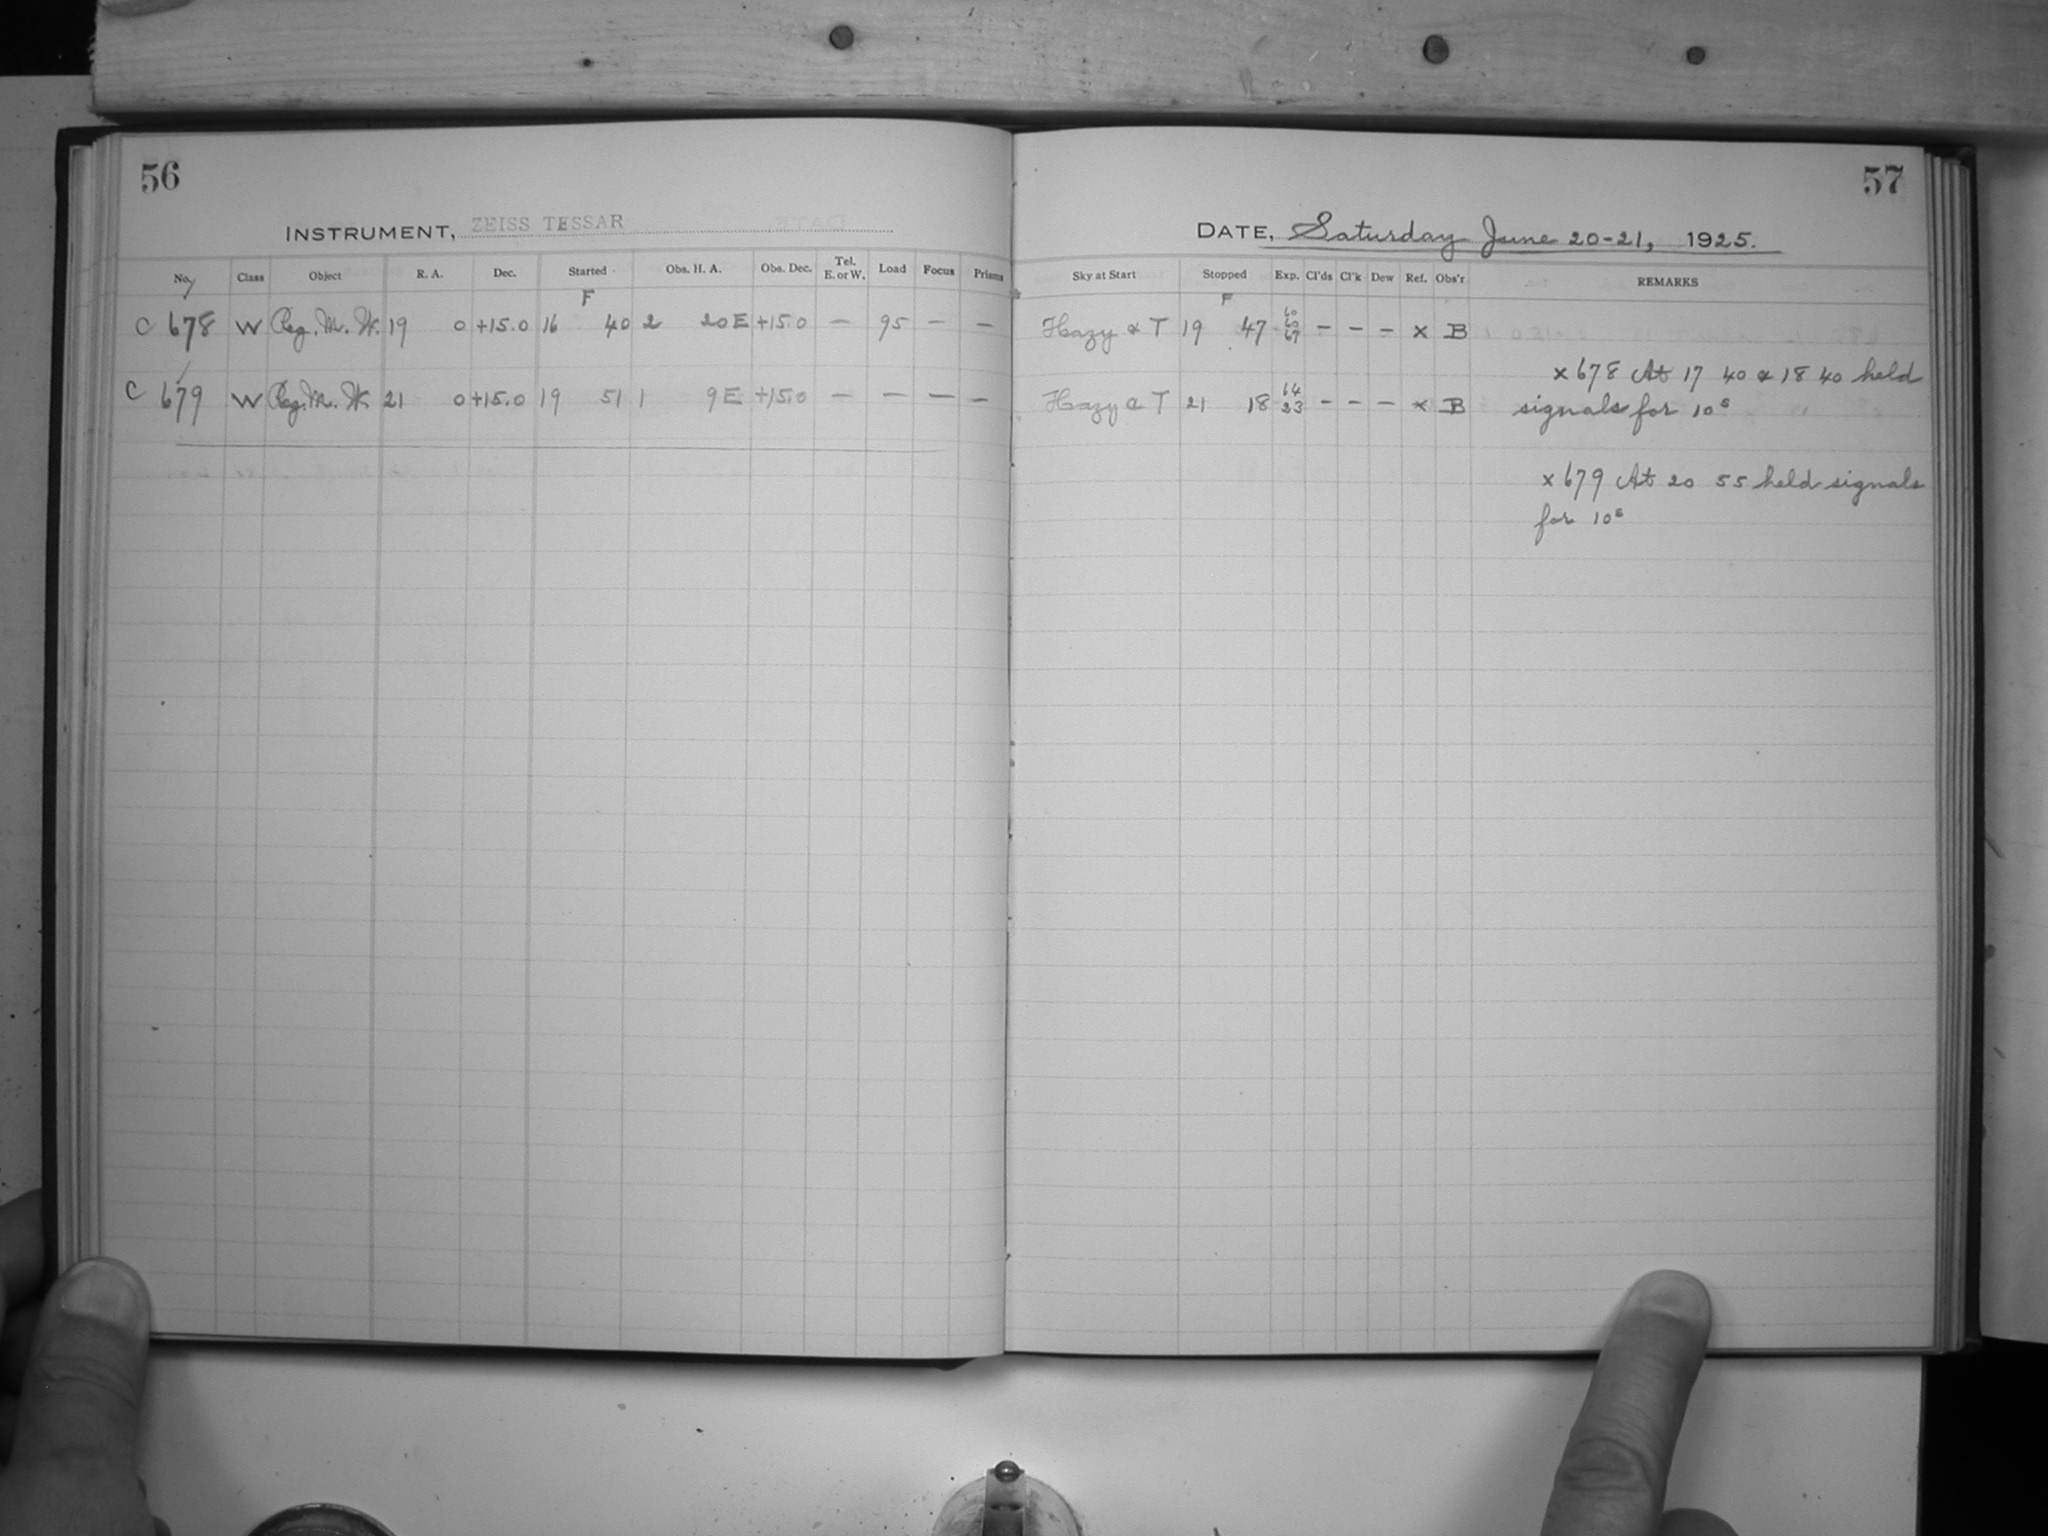 56
INSTRUMENT, ZEISS TESSAR
No. Class Object R. A. Dec. Started Obs. H. A. Obs. Dec. Tel. E. or W. Load Focus Prisms
F
C 678 W Reg. M. W. 19 0 +15.0 16 40 2 20 E +15.0 — 95 — —
C 679 W Reg. M. W. 21 0 +15.0 19 51 1 9 E +15.0 — — — —
57
DATE, Saturday June 20-21, 1925.
Sky at Start Stopped Exp. Cl'ds Cl'k Dew Ref. Obs'r REMARKS
F
Hazy & T 19 47 60 60 67 — — — x B
x 678 At 17 40 & 18 40 held
Hazy & T 21 18 64 23 — — — x B
signals for 10s
x 679 At 20 55 held signals
for 10s